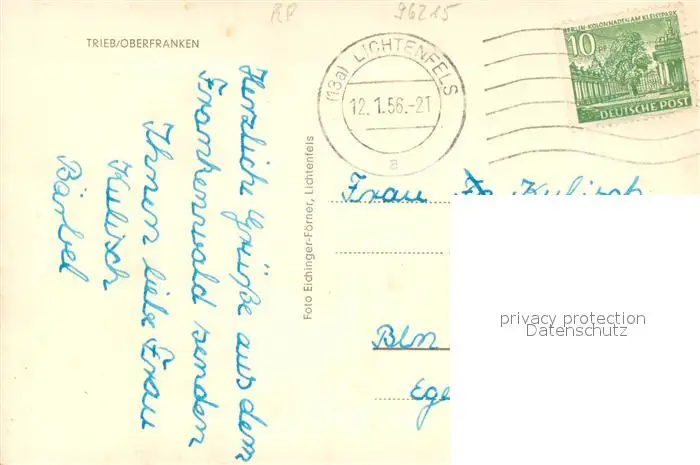 RP
96215
TRIEB/OBERFRANKEN
(13a) LICHTENFELS
12.1.56.-21
a
BERLIN·KOLONNADEN AM KLEISTPARK
10
PF
DEUTSCHE POST
Herzliche Grüße aus dem
Frankenwald senden
Ihnen liebe Frau
Kulisch
Bärbel
Foto Eichinger-Förner, Lichtenfels
Frau Kulisch
Bln
Ege
privacy protection
Datenschutz